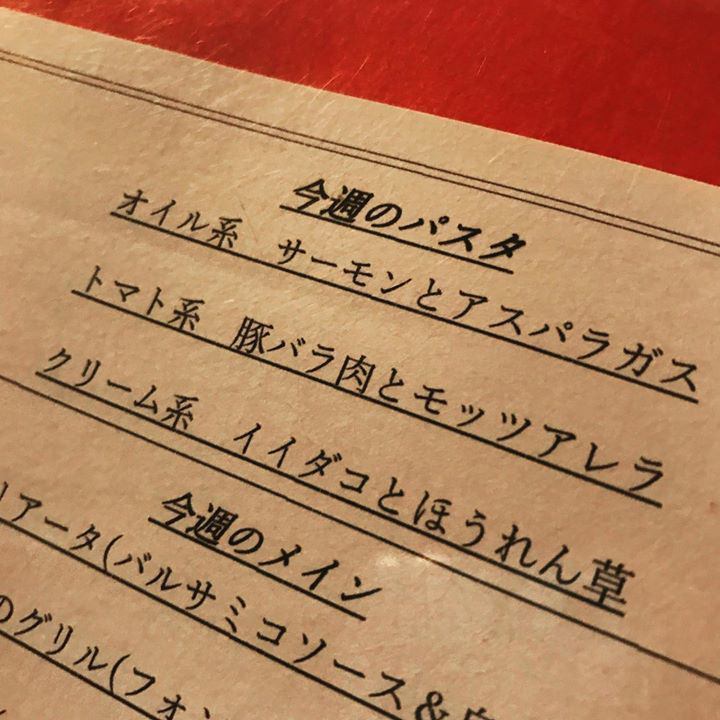 今週のパスタ
オイル系　サーモンとアスパラガス
トマト系　豚バラ肉とモッツアレラ
クリーム系　イイダコとほうれん草
今週のメイン
リアータ(バルサミコソース&
のグリル(フォン